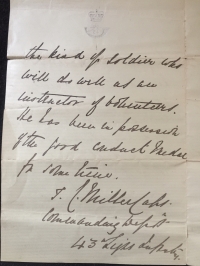 the kind of soldier who
will do well as an
instructor of Volunteers.
He has been in possession
of the good conduct medal
for some time.
Commanding Depôt
43rd Light Infantry.